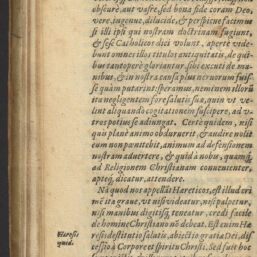 obscurè, aut vafrè, sed bona fide coram Deo,
verè, ingenuè, dilucidè, & perspicuè facimus
si illi ipsi qui nostram doctrinam fugiunt,
& sese Catholicos dici volunt, apertè vide-
bunt omnes illos titulos antiquitatis, de qui-
bus tantoperè gloriantur, sibi excuti de ma-
nibus, & in nostra causa plus nervorum fuis-
se quàm putarint: speramus, neminem illorū
ita negligentem fore salutis suæ, quin vt ve-
lint aliquando cogitationem suscipere, ad v-
tros potius se adiungat. Certè quidem, nisi
quis planè animo obduruerit, & audire nolit
eum non pœnitebit, animum ad defensionem
nostram aduertere, & quid à nobis, quamq́;
ad Religionem Christianam conuenienter,
aptéq́; dicatur, attendere.
Nā quod nos appellāt Hæreticos, est illud cri
mē ita graue, vt nisi videatur, nisi palpetur,
nisi manibus digitisq́; teneatur, credi facilè
de homine Christiano nō debeat. Est enim Hæ
Hæresis resis destitutio salutis, abiectio gratiæ Dei, dis
quid. cessio à Corpore et spiritu Christi. Sed fuit hoc